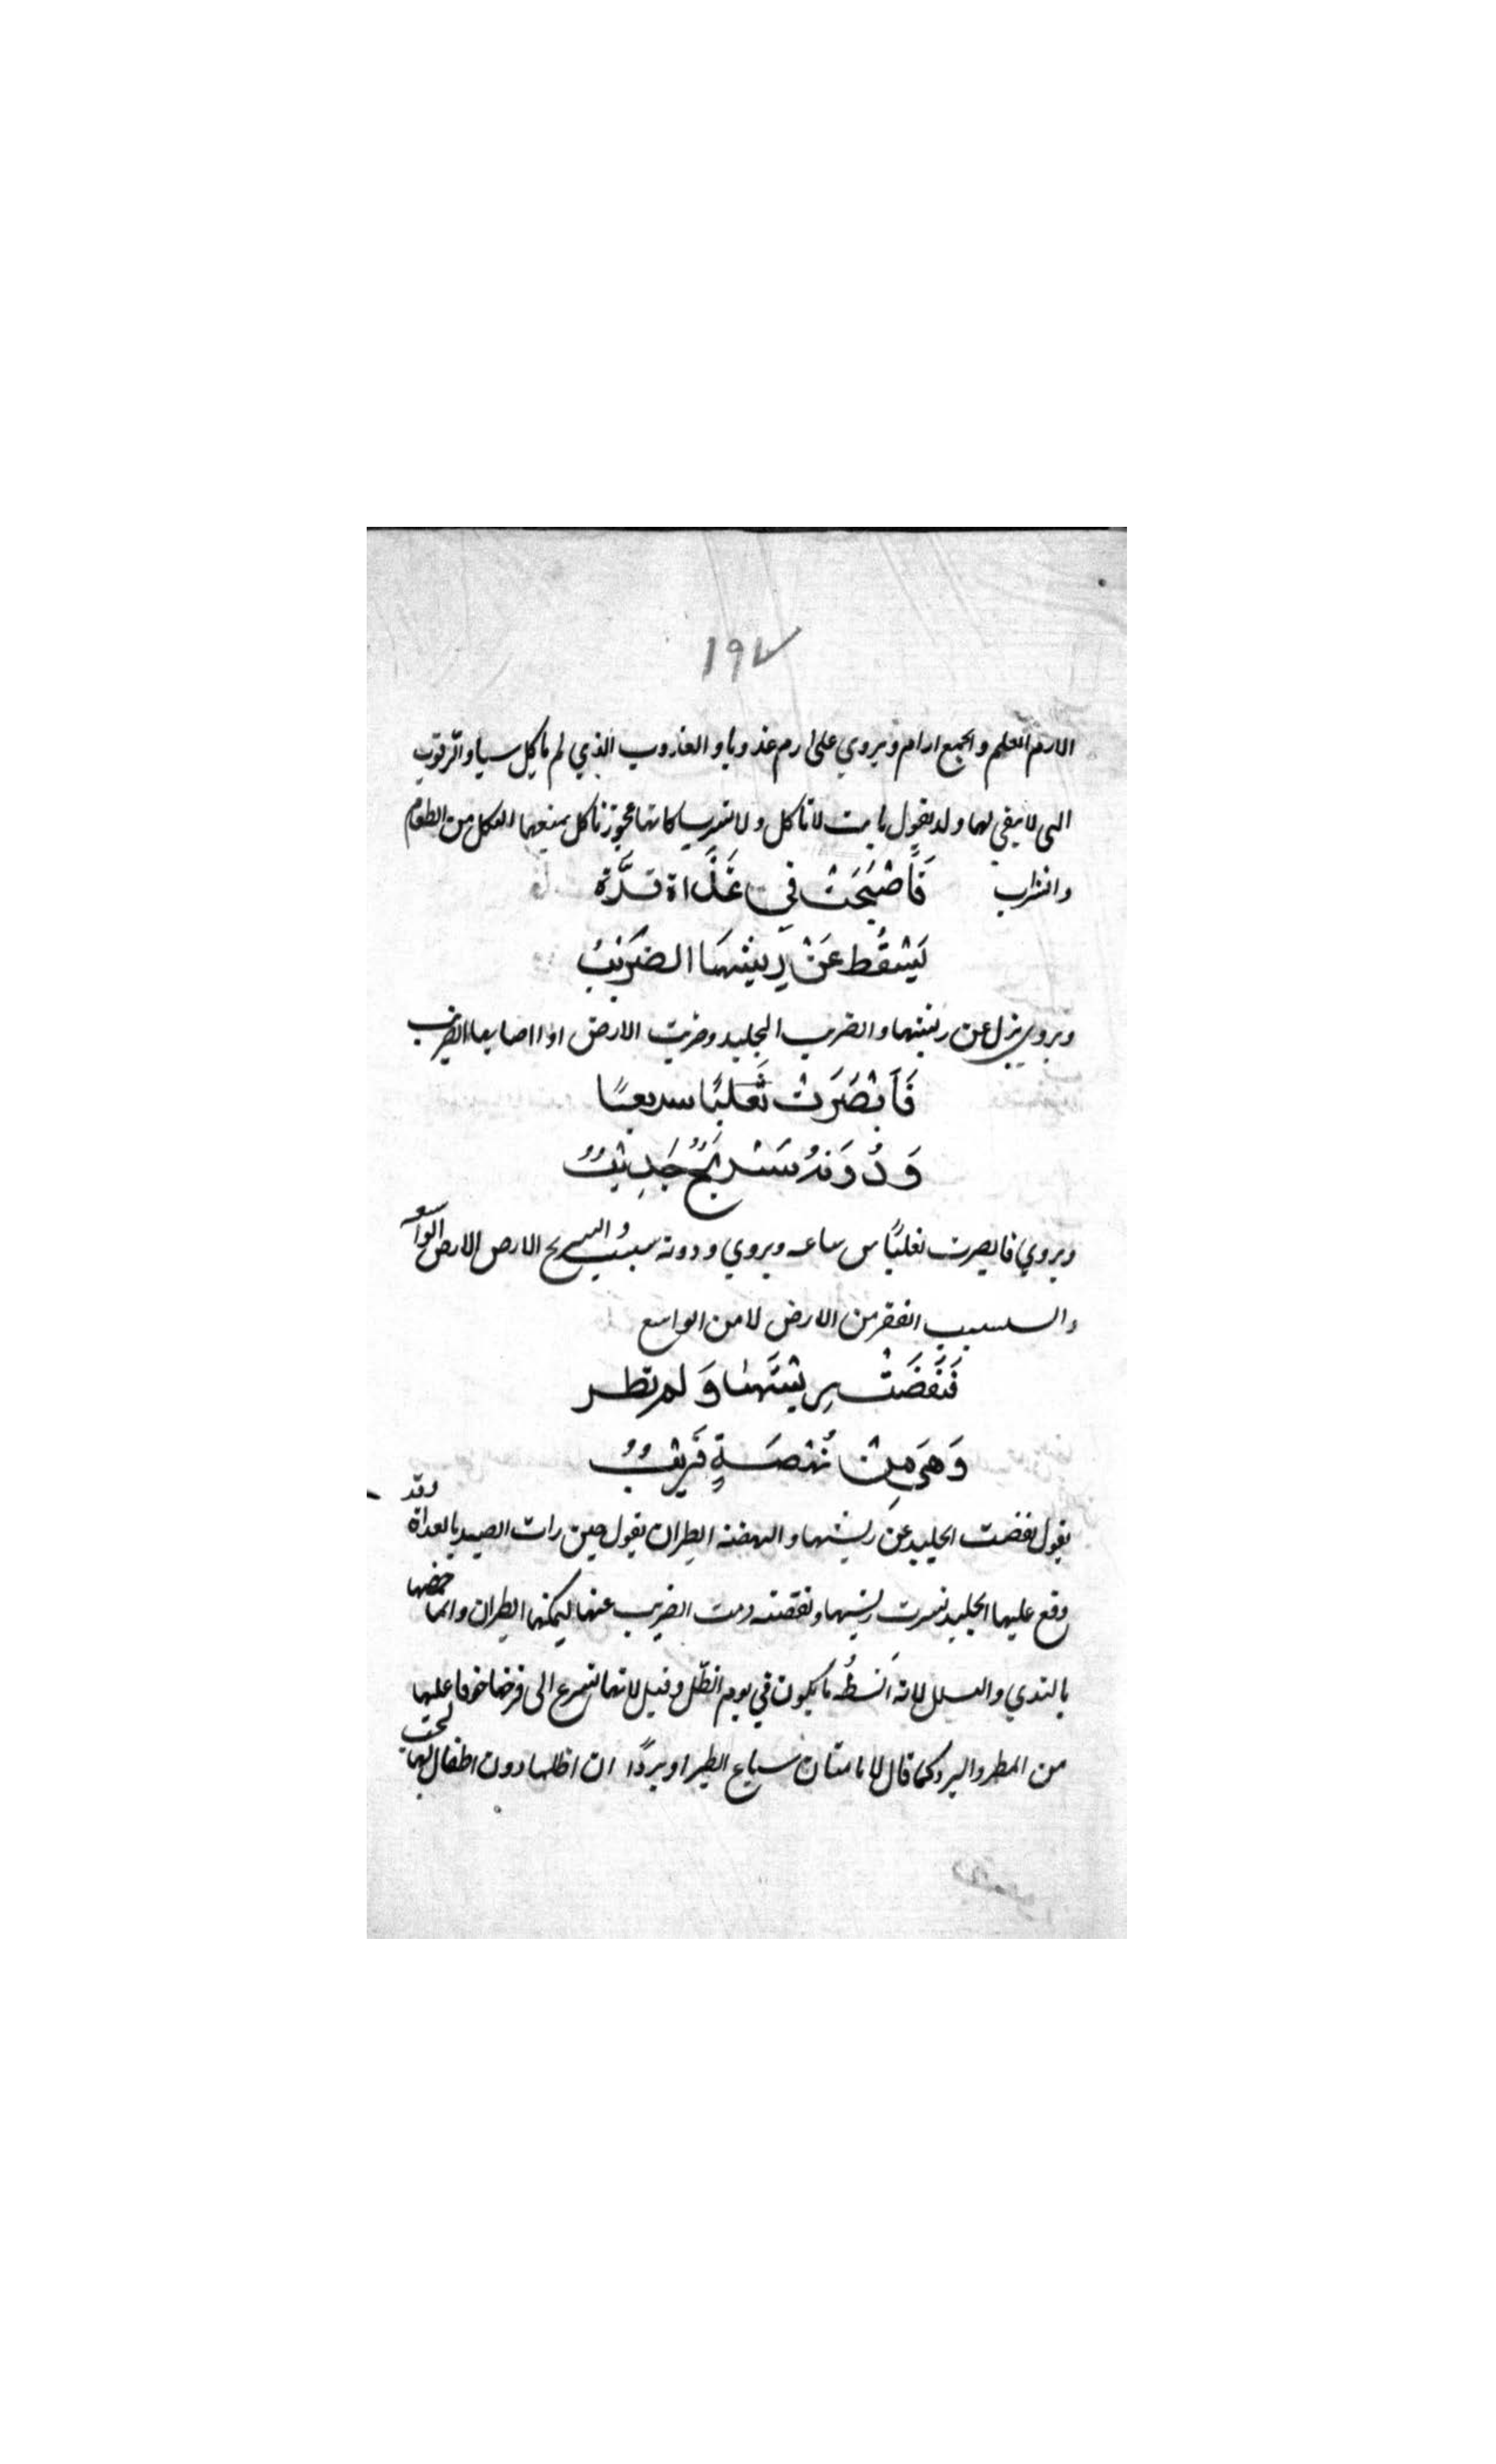 ١٩٧
الارم العلم والجمع ارام ويروي على ارم عذوبا والعذوب الذي لم ياكل سيا والرقوب
التي لا يبقي لها ولد يقول باتت لا تاكل ولا تشرب كانها عجوز ثاكل يمنعها الثكل من الطعام
والشراب فَأَصْبَحَتْ فِي غَدَاة قرَّة
يَسْقُط عَنْ رِيشِهَا الضَرِيْبُ
ويروي يزل عن ريشها والضرب الجليد وضربت الارض اذا اصابها الضريب
فَأَبْصَرَتْ ثَعْلَبًا سريعًا
وَدُونَهُ سَرْبَخٌ جَدِيْبٌ
ويروي فابصرت ثعلبًا من ساعه ويروي ودونه سبسب والسربخ الارض الارض الواسعه
والسبسب القفر من الارض لا من الواسع
فَنَفَضَتْ رِيشَهَا وَلم تطر
وَهَيَ مِنْ نُهْضَةٍ قَرِيْبٌ
يقول نفضت الجليد عن ريشها والنهضه الطيران يقول حين رات الصيد بالغداة وقد
وقع عليها الجليد نشرت ريشها ونفضته رمت الضريب عنها ليمكنها الطيران وانما خصها
بالندي والبلل لانه اَنشطُ ما يكون في يوم الطل وقيل لانها تسرع الى فرخها خوفا عليها
من المطر والبرد كما قال لا يامنان سباع الطير او بردًا ان اظلما دون اطفال لها لجب